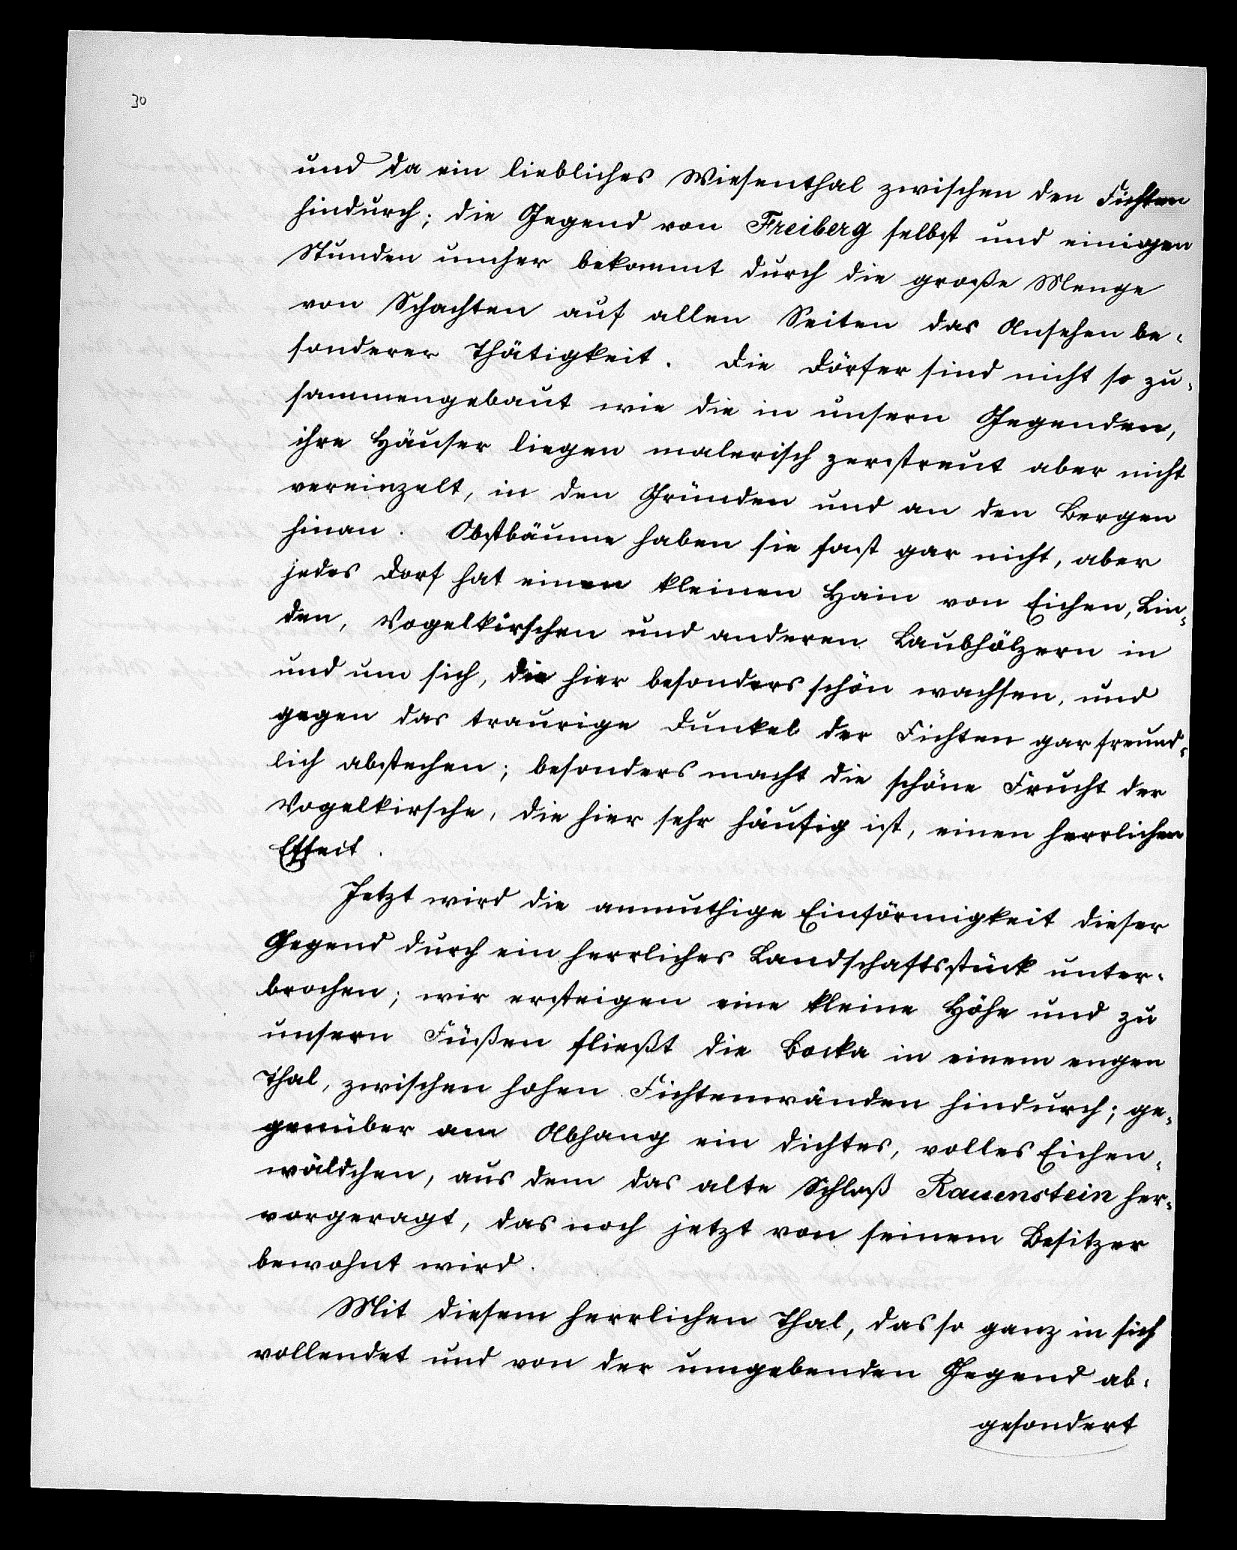 30
und da ein liebliches Wiesenthal zwischen den Fichten
hindurch; die Gegend von Freiberg selbst und einigen
Stunden umher bekommt durch die große Menge
von Schachten auf allen Seiten das Ansehen be-
sonderer Thätigkeit. Die Dörfer sind nicht so zu-
sammengebaut wie die in unsern Gegenden,
ihre Häuser liegen malerisch zerstreut aber nicht
vereinzelt, in den Gründen und an den Bergen
hinan. Obstbäume haben sie fast gar nicht, aber
jedes Dorf hat einen kleinen Hain von Eichen, Lin-
den, Vogelkirschen und anderen Laubhölzern in
und um sich, die hier besonders schön wachsen, und
gegen das traurige Dunkel der Fichten gar freund-
lich abstechen; besonders macht die schöne Frucht der
Vogelkirsche, die hier sehr häufig ist, einen herrlichen
Effect.
Jetzt wird die anmuthige Einförmigkeit dieser
Gegend durch ein herrliches Landschaftsstück unter-
brochen; wir ersteigen eine kleine Höhe und zu
unsern Füßen fließt die Bocka in einem engen
Thal, zwischen hohen Fichtenwänden hindurch; ge-
genüber am Abhang ein dichtes, volles Eichen-
wäldchen, aus dem das alte Schloß Rauenstein her-
vorgeragt, das noch jetzt von seinem Besitzer
bewohnt wird.
Mit diesem herrlichen Thal, das so ganz in sich
vollendet und von der umgebenden Gegend ab-
gesondert